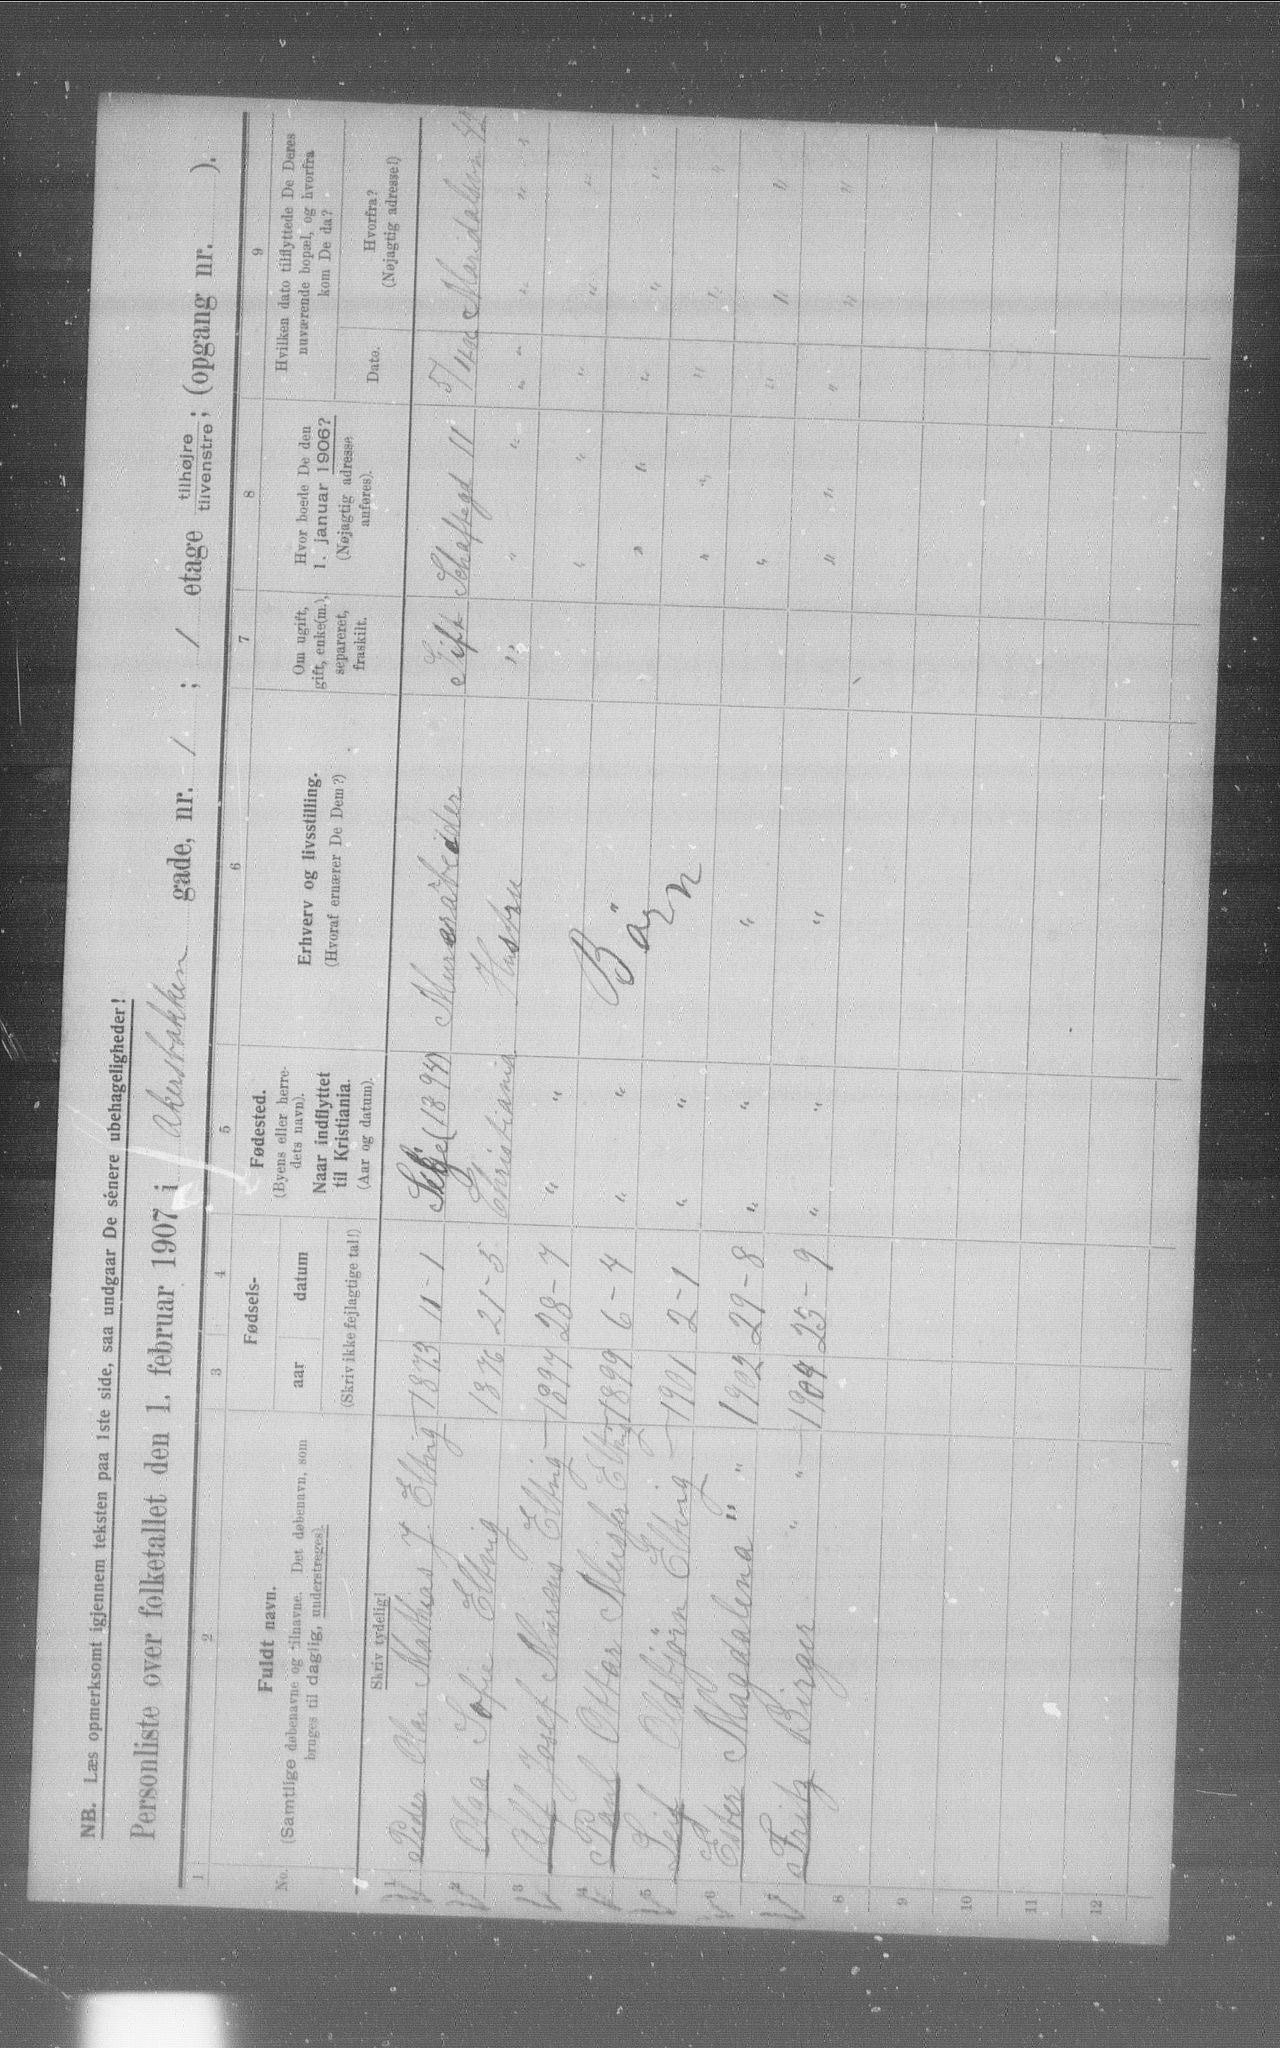 NB. Læs opmerksomt igjennem teksten paa 1ste side, saa undgaar De sénere ubehageligheder!
Personliste over folketallet den 1. februar 1907 i Akersbakken gade, nr. 1 ; 1 etage tilhøjre tilvenstre ; (opgang nr. ).
1 2 3 4 5 6 7 8 9
No. Fuldt navn. (Samtlige døbenavne og tilnavne. Det døbenavn, som bruges til daglig, understreges).
Fødsels- aar datum
Fødested. (Byens eller herredets navn). Naar indflyttet til Kristiania. (Aar og datum).
Erhverv og livsstilling. (Hvoraf ernærer De Dem?)
Om ugift, gift, enke(m.), separeret, fraskilt.
Hvor boede De den 1. januar 1906? (Nøjagtig adresse anføres).
Hvilken dato tilflyttede De Deres nuværende bopæl, og hvorfra kom De da?
Skriv tydelig! (Skriv ikke fejlagtige tal!) Dato. Hvorfra? (Nøjagtig adresse!)
1 Peder Olai Mathias J. Elbrig 1873 11-1 (1894) Murerarbeider Gift Schaftegd 11 5/ Maridalsvn 42
2 Olga Sofie Elbrig 1876 21-5 Christiania Hustru " " " " " " "
3 Alf Josef Elbrig 1897 28-7 " " " " " " "
4 Paul Ottar Elbrig 1899 6-4 " " Barn " " " " "
5 Leif Oldbjørn Elbrig 1901 2-1 " " " " " " "
6 Ester Magdalena " " 1902 29-8 " " " " " " "
7 Fritz Birger " " 1904 25-9 " " " " " " " "
8
9
10
11
12